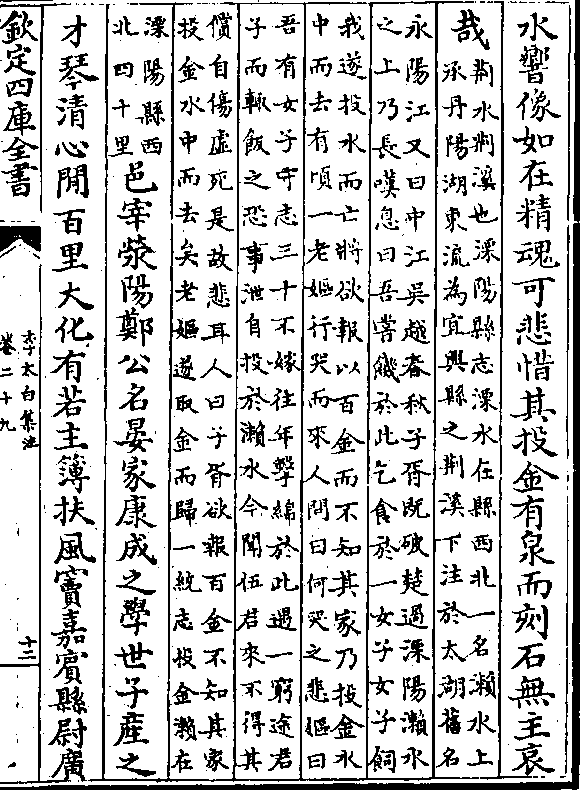 水響像如在精魂可悲惜其投金有泉而刻石無主哀
哉
荆水荆溪也溧陽縣志溧水在縣西北一名瀨水上
承丹陽湖東流為宜興縣之荆溪下注於太湖舊名
永陽江又曰中江吳越春秋子胥既破楚過溧陽瀨水
之上乃長嘆息曰吾嘗饑於此乞食於一女子女子飼
我遂投水而亡將欲報以百金而不知其家乃投金水
中而去有頃一老嫗行哭而來人問曰何哭之悲嫗曰
吾有女子守志三十不嫁往年擊綿於此遇一窮途君
子而輒飯之恐事泄自投於瀨水今聞伍君來不得其
償自傷虛死是故悲耳人曰子胥欲報百金不知其家
投金水中而去矣老嫗遂取金而歸一統志投金瀨在
溧陽縣西
北四十里
邑宰滎陽鄭公名晏家康成之學世子產之
才琴清心閒百里大化有若主簿扶風竇嘉賓縣尉廣
欽定四庫全書
李太白集注
卷二十九
十二